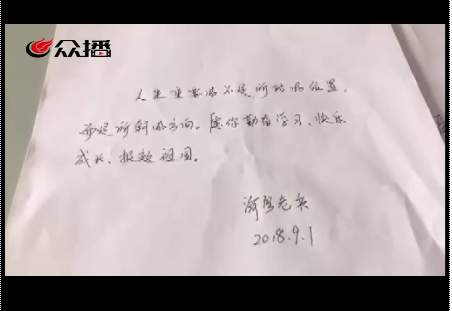 众播
人生重要的不是所站的位置,
而是所朝的方向。愿你勤奋学习、快乐
成长、报效祖国。
老兵
2018.9.1